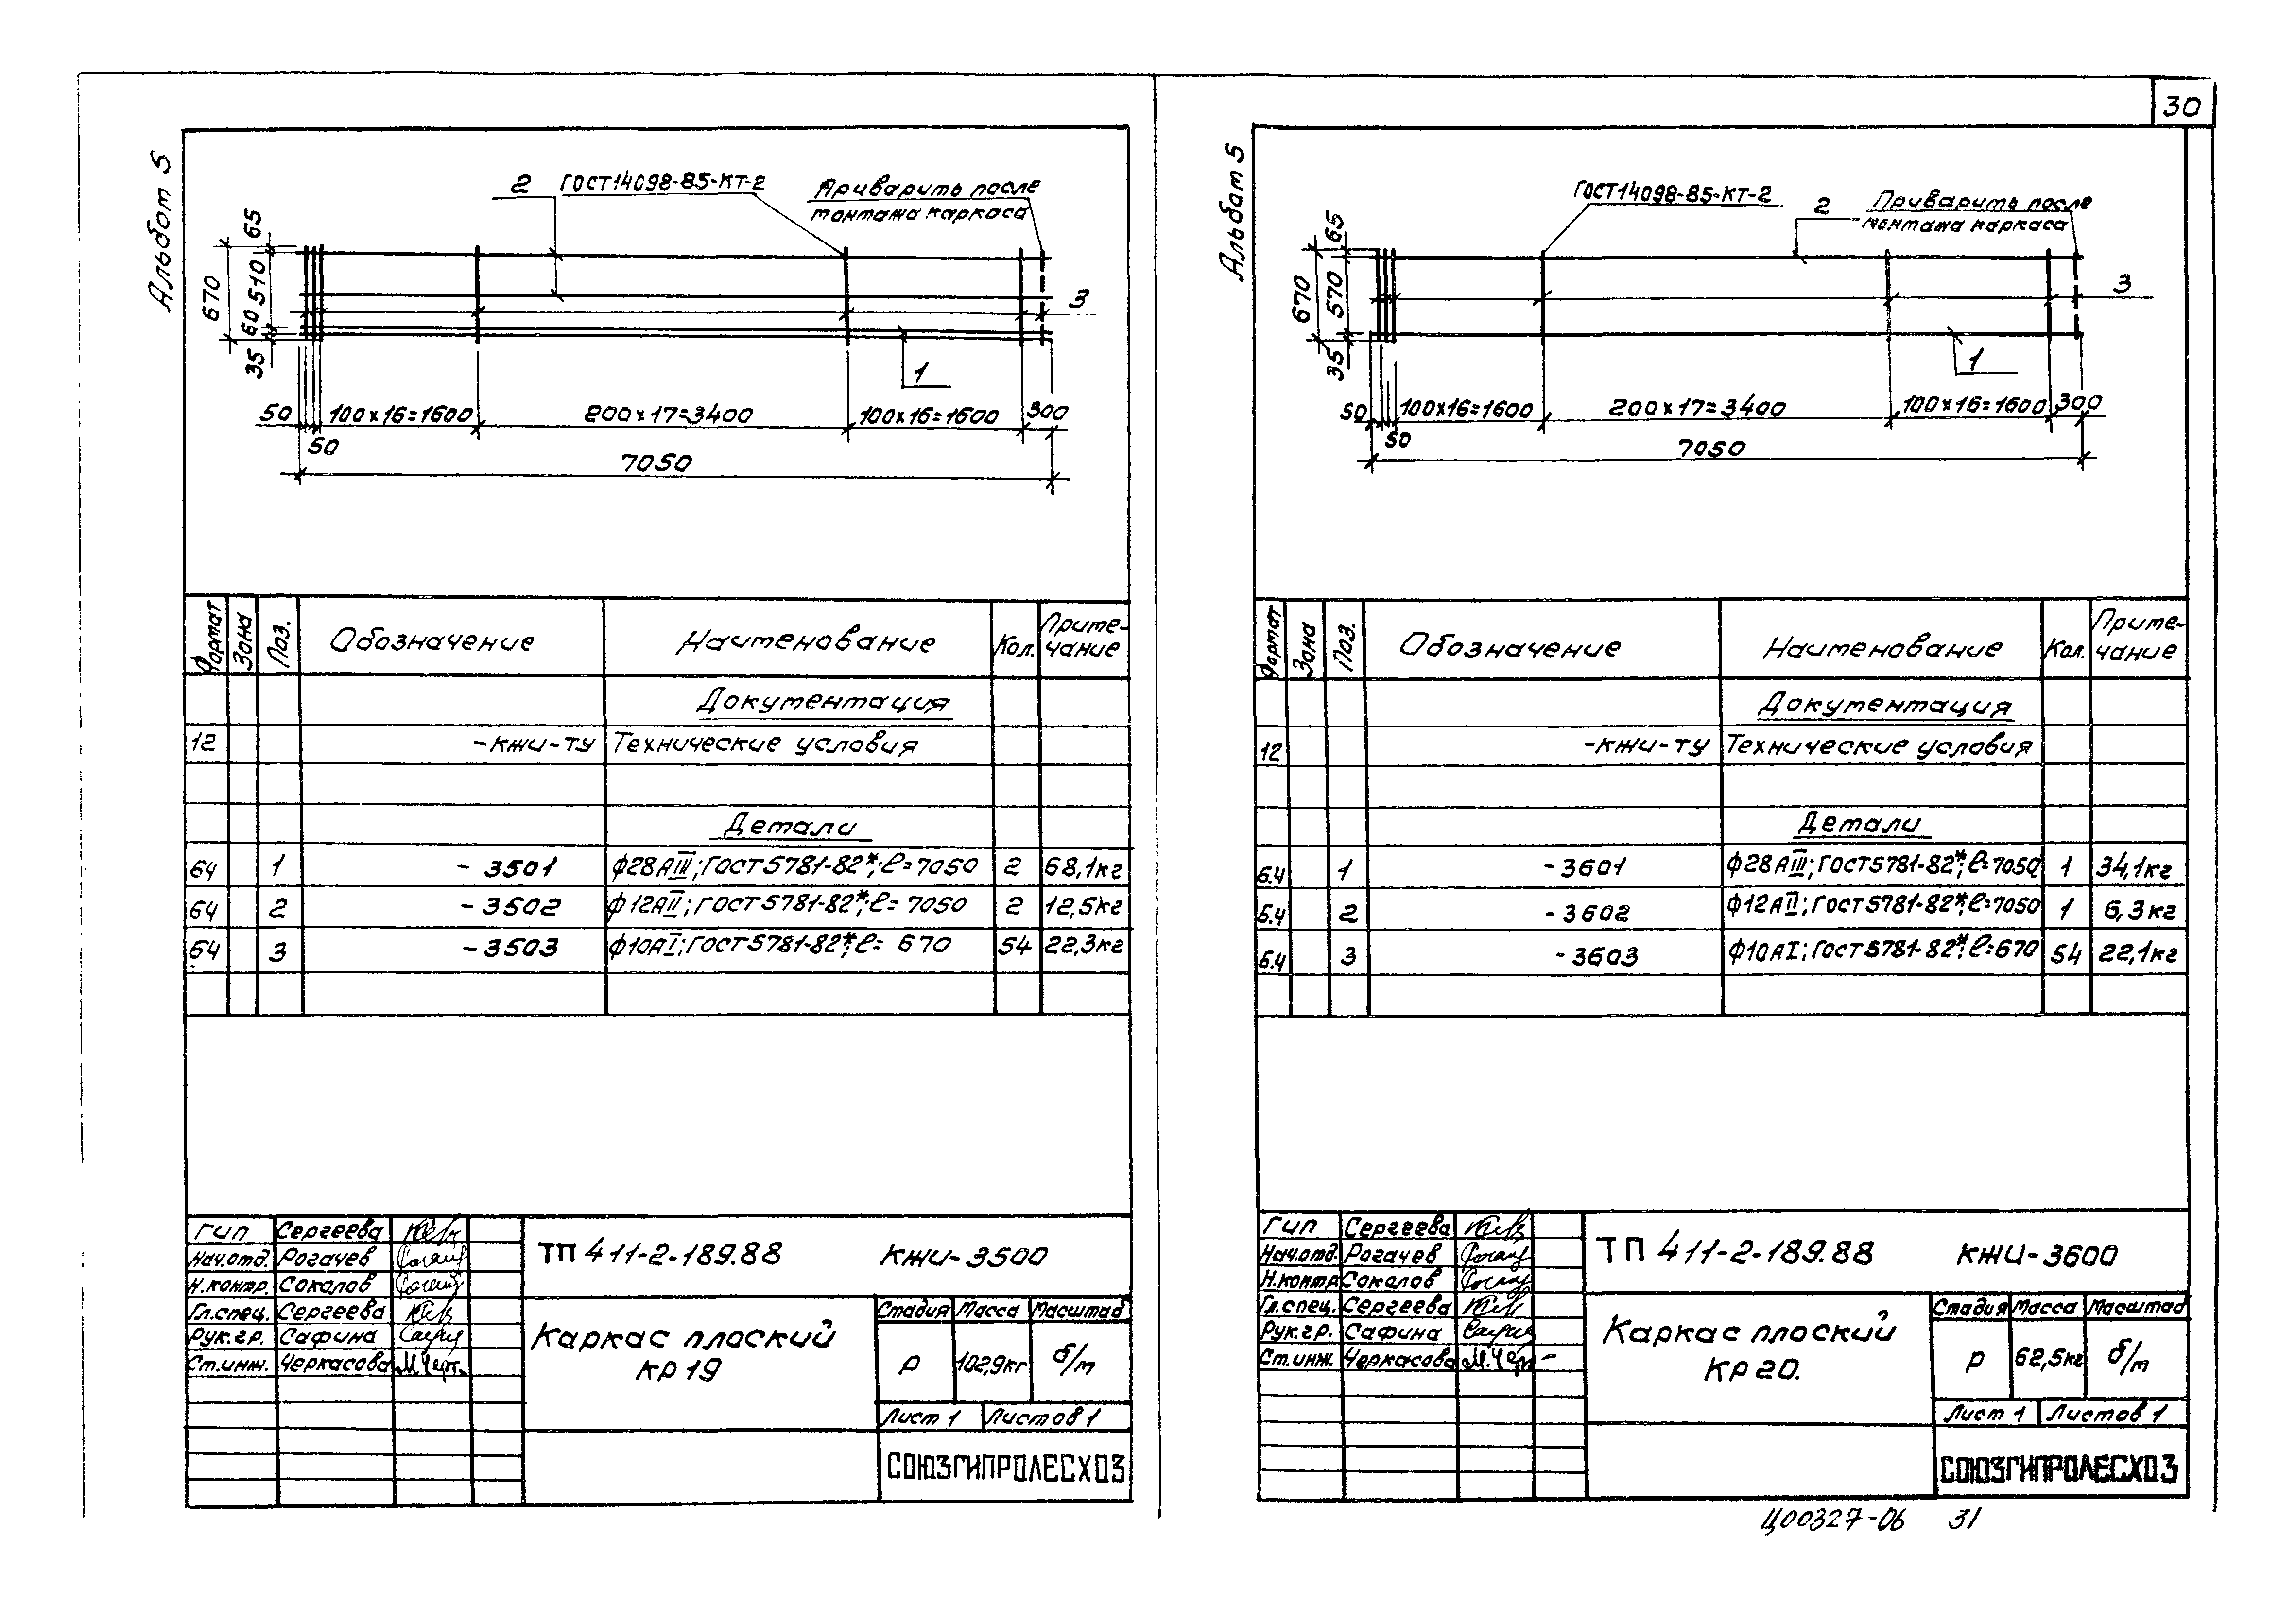 30
Альбом 5
2 ГОСТ14098-85-КТ-2
Приварить после
монтажа каркаса
65
510
670
60
35
3
1
50 100х16=1600 200х17=3400 100х16=1600 300
50
7050
Формат Зона Поз. Обозначение Наименование Кол. Приме-
чание
Документация
12 -КЖИ-ТУ Технические условия
Детали
64 1 - 3501 ф28АIII; ГОСТ5781-82*; ℓ=7050 2 68,1кг
64 2 - 3502 ф12АII; ГОСТ5781-82*; ℓ= 7050 2 12,5кг
64 3 - 3503 ф10АI; ГОСТ5781-82*; ℓ= 670 54 22,3кг
ГИП Сергеева
Нач.отд. Рогачев
Н.контр. Соколов
Гл.спец. Сергеева
Рук.гр. Сафина
Ст.инж. Черкасова
ТП 411-2-189.88 КЖИ-3500
Каркас плоский
КР19
Стадия Масса Масштаб
Р 102,9кг б/м
Лист 1 Листов 1
СОЮЗГИПРОЛЕСХОЗ
Альбом 5
ГОСТ14098-85-КТ-2
2 Приварить после
монтажа каркаса
65
670 570
35
3
1
50 100х16=1600 200х17=3400 100х16=1600 300
50
7050
Формат Зона Поз. Обозначение Наименование Кол. Приме-
чание
Документация
12 -КЖИ-ТУ Технические условия
Детали
Б.4 1 -3601 ф28АIII; ГОСТ5781-82*; ℓ=7050 1 34,1кг
Б.4 2 -3602 ф12АII; ГОСТ5781-82*; ℓ=7050 1 6,3кг
Б.4 3 -3603 ф10АI; ГОСТ5781-82*; ℓ=670 54 22,1кг
ГИП Сергеева
Нач.отд. Рогачев
Н.контр. Соколов
Гл.спец. Сергеева
Рук.гр. Сафина
Ст.инж. Черкасова
ТП 411-2-189.88 КЖИ-3600
Каркас плоский
КР20.
Стадия Масса Масштаб
Р 62,5кг б/м
Лист 1 Листов 1
СОЮЗГИПРОЛЕСХОЗ
Ц00327-06 31